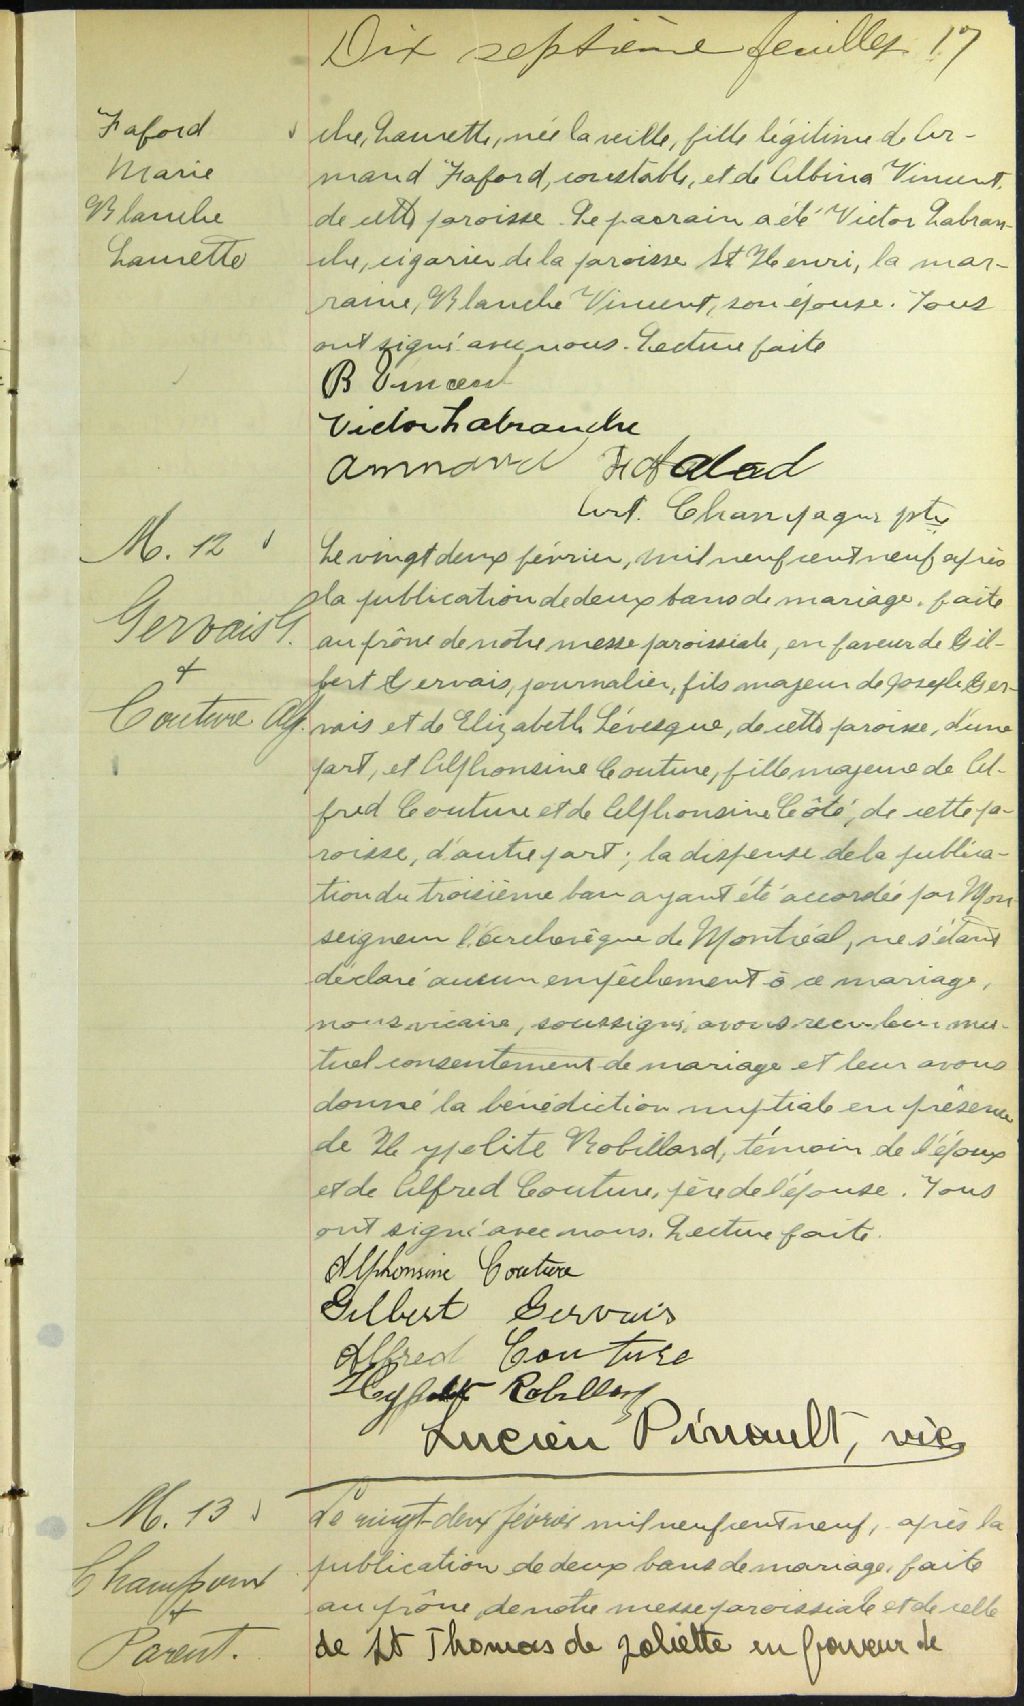 Dix septième feuillet 17
Faford
Marie
Blanche
Laurette
che, Laurette, née la veille, fille légitime de Ar-
mand Faford, constable, et de Albina Vincent,
de cette paroisse. Le parrain a été Victor Labran-
che, cigarier de la paroisse St Henri, la mar-
raine, Blanche Vincent, son épouse. Tous
ont signé avec nous. Lecture faite
B Vincent
Victor Labranche
Armand
Art. Champagne ptre
M. 12
Gervais G.
+
Couture Alp.
Le vingt deux février, mil neuf cent neuf après
la publication de deux bans de mariage, faite
au prône de notre messe paroissiale, en faveur de Gil-
bert Gervais, journalier, fils majeur de Joseph Ger-
vais et de Elizabeth Lévesque, de cette paroisse, d'une
part, et Alphonsine Couture, fille majeure de Al-
fred Couture et de Alphonsine Côté, de cette pa-
roisse, d'autre part; la dispense de la publica-
tion du troisième ban ayant été accordée par Mon-
seigneur l'Archevêque de Montréal, ne s'étant
déclaré aucun empêchement à ce mariage,
nous vicaire, soussigné, avons reçu leur mu-
tuel consentement de mariage et leur avons
donné la bénédiction nuptiale en présence
de Hypolite Robillard, témoin de l'époux
et de Alfred Couture, père de l'épouse. Tous
ont signé avec nous. Lecture faite.
Alphonsine Couture
Gilbert Gervais
Alfred Couture
Hypolite Robillard
Lucien Pinault, vic
M. 13
Champoux
+
Parent.
Le vingt-deux février mil neuf cent neuf, après la
publication de deux bans de mariage, faite
au prône de notre messe paroissiale et de celle
de St Thomas de Joliette en faveur de